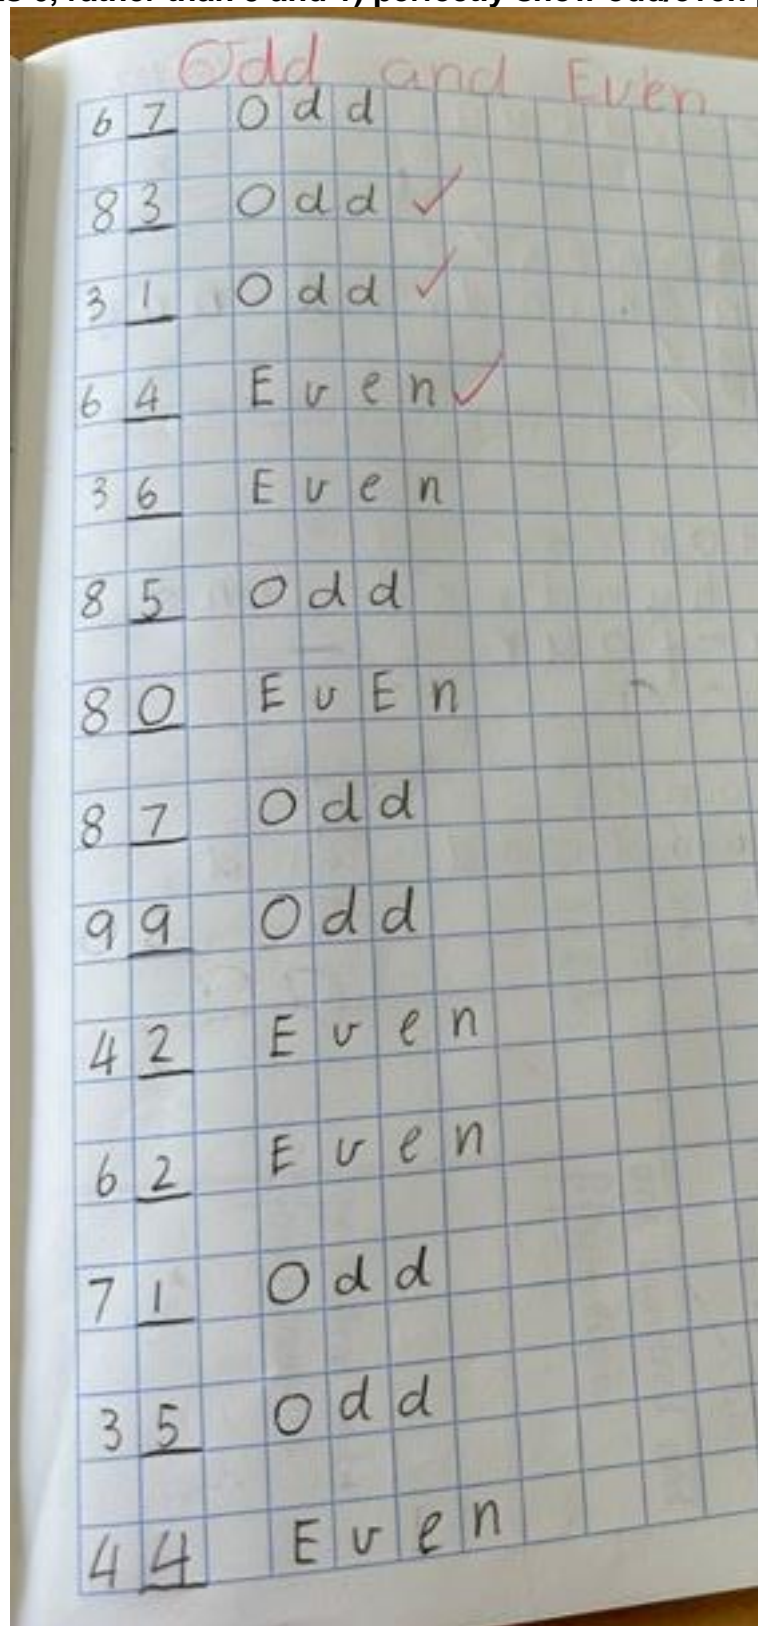 Odd and Even
67 Odd
83 Odd ✓
31 Odd ✓
64 Even ✓
36 Even
85 Odd
80 EvEn
87 Odd
99 Odd
42 Even
62 Even
71 Odd
35 Odd
44 Even